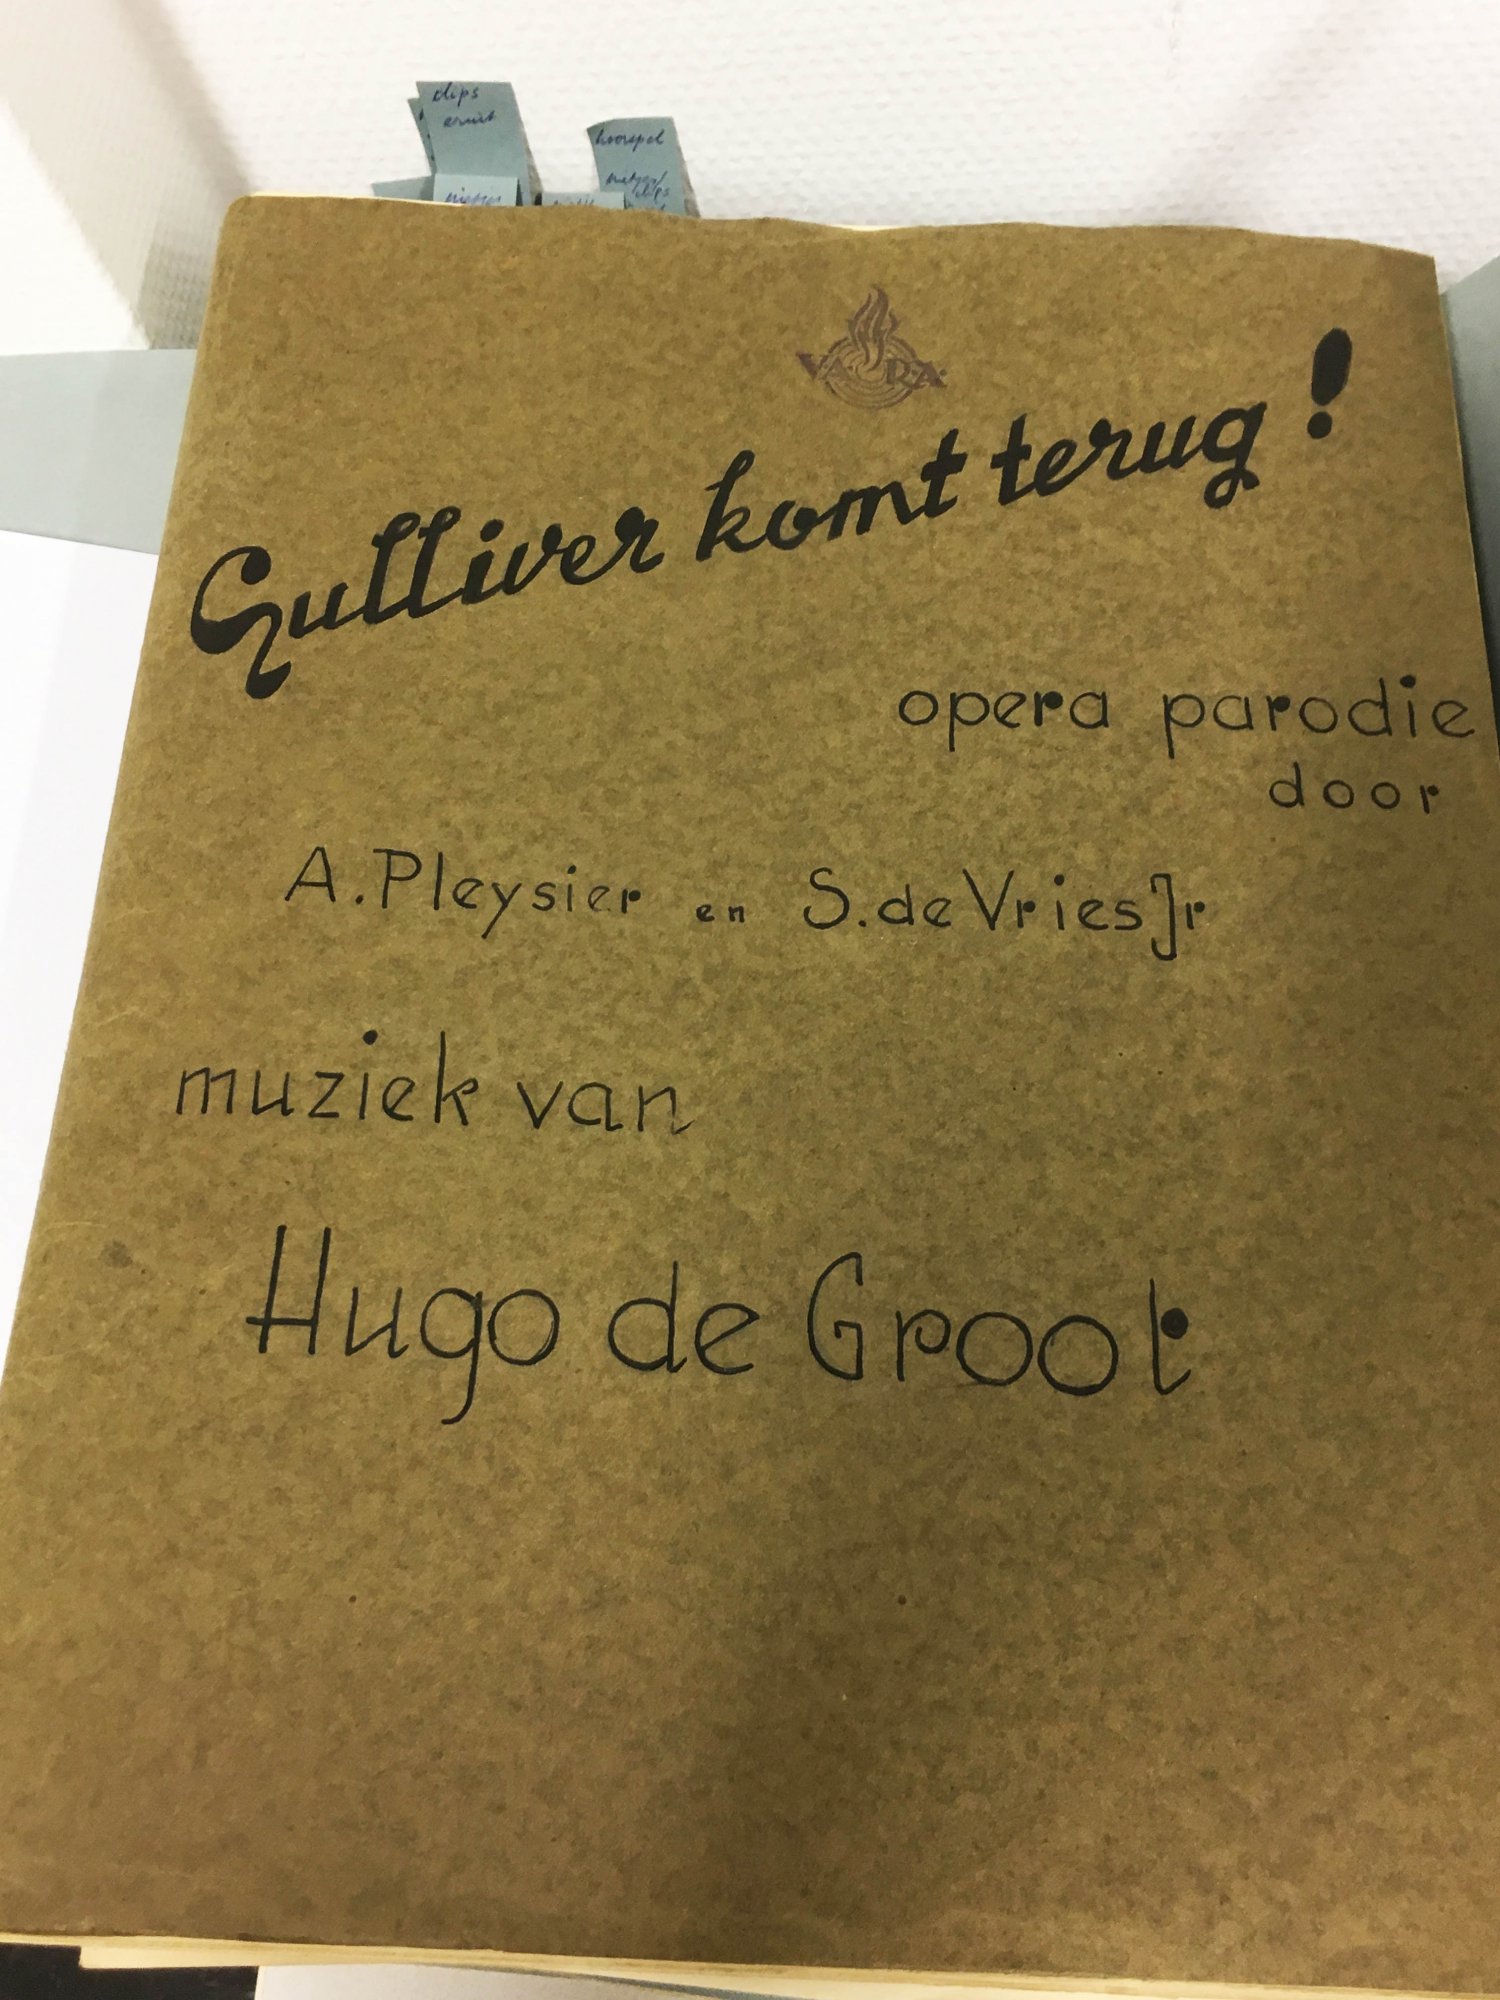 clips
eruit
hoorspel
nietjes/
clips
nietjes
V.A.R.A.
Gulliver komt terug!
opera parodie
door
A. Pleysier en S. de Vries Jr
muziek van
Hugo de Groot